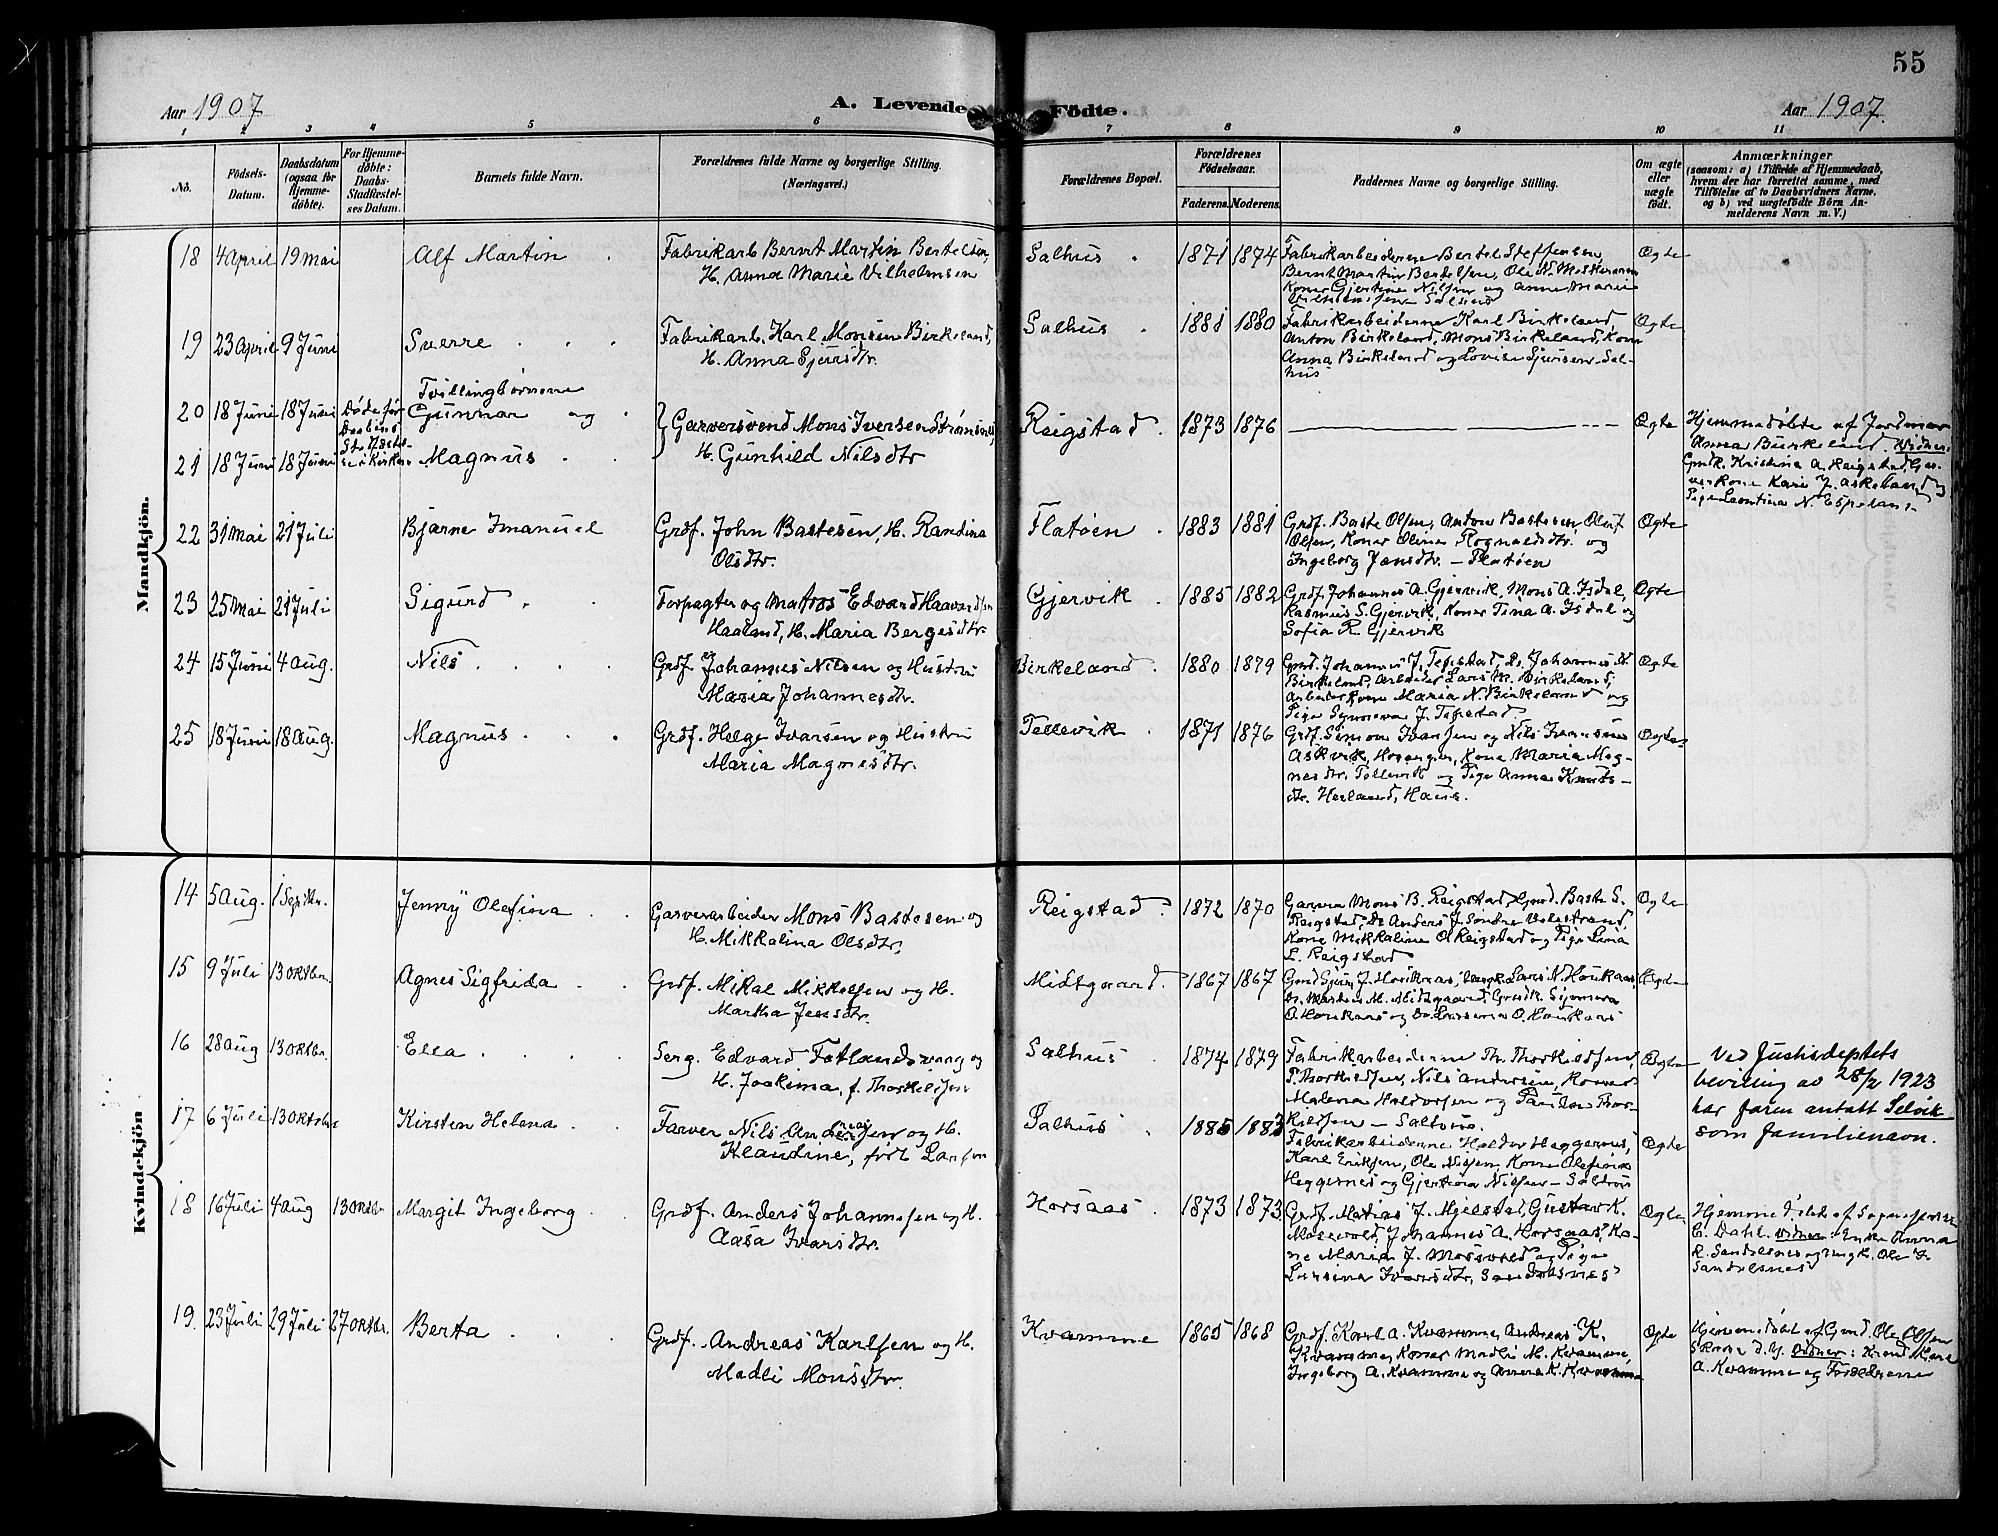 55
Aar 1907
A. Levende Fødte.
Aar 1907.
1 2 3 4 5 6 7 8 9 10 11
No.
Födsels-
Datum.
Daabsdatum
(ogsaa for
Hjemme-
døbte).
For Hjemme-
døbte:
Daabs-
Stadfæstel-
ses Datum.
Barnets fulde Navn.
Forældrenes fulde Navne og borgerlige Stilling.
(Næringsvei.)
Forældrenes Bopæl.
Forældrenes
Fødselsaar.
Faderens. Moderens.
Faddernes Navne og borgerlige Stilling.
Om ægte
eller
uægte
født.
Anmærkninger
(saasom: a) i Tilfælde af Hjemmedaab,
hvem der har forrettet samme, med
Tilføielse af to Daabsvidners Navne,
og b) ved uægtefødte Børn An-
melderens Navn m. V.)
Mandkjön.
18 4 April 19 Mai Alf Martin Fabrikarb. Bernt Martin Bertelsen,
H. Anna Marie Vilhelmsen
Salhus 1871 1874 Fabrikarbeiderne Bertel Steffensen,
Bernt Martin Bertelsen, Ole N.
Koner Gjertine Nilsen og Anne Marie
Salhus
Ægte
19 23 April 9 Juni Sverre Fabrikarb. Karl Monsen Birkeland,
H. Anna Sjursdtr.
Salhus 1881 1880 Fabrikarbeiderne Karl Birkeland
Anton Birkeland, Mons Birkeland, Kone
Anna Birkeland og Lovise Sjursen Sal-
hus
Ægte
Tvillingbørnene
20 18 Juni 18 Juni Døde før Gunnar og
Daabens
21 18 Juni 18 Juni Magnus
Garversvend Mons Iversen Strømsnes
H. Gunhild Nilsdtr
Reigstad 1873 1876 Ægte
Hjemmedøbte af Jordmor
Anna Birkeland. Vidner:
Grdk. Kristina A. Reigstad, Gar-
verkone Kari J. Askeland og
Pige Leontina N. Espeland
22 31 Mai 21 Juli Bjarne Imanuel Grdf. John Bastesen, H. Randina
Olsdtr.
Flatøen 1883 1881 Grdf. Baste Olsen, Anton Bastesen Oluf
Olsen, Koner Olina Rognaldsdtr. og
Ingeborg Jansdtr. – Flatøen
Ægte
23 25 Mai 21 Juli Sigurd Forpagter og Matros Edvard Haavardsen
Haaland, H. Maria Bergesdtr.
Gjervik 1885 1882 Grdf. Johannes A. Gjervik, Mons A. Isdal,
Rasmus S. Gjervik, Koner Tina A. Isdal og
Sofia R. Gjervik
Ægte
24 15 Juni 4 Aug. Nils Grdf. Johannes Nilsen og Hustru
Maria Johannesdtr.
Birkeland 1880 1879 Grdf. Johannes J. Tepstad, Do. Johannes N.
Birkeland, Arbeider Lars M. Birkeland,
Arbeiderkone Maria N. Birkeland og
Pige Synneva J. Tepstad
Ægte
25 18 Juni 18 Aug. Magnus Grdf. Helge Ivarsen og Hustru
Maria Magnesdtr.
Tellevik 1871 1876 Grdf. Simon Ivarsen og Nils Ivarsen
Askvik, Hosanger, Kone Maria Mag-
nesdtr. Tellevik og Pige Anna Knuts-
dtr. Herland, Haus.
Ægte
Kvindekjön
14 5 Aug. 1 Septbr. Jenny Olefina Garverarbeider Mons Bastesen og
H. Mikkalina Olsdtr.
Reigstad 1872 1870 Garver Mons B. Reigstad, Grd. Baste S.
Reigstad, Do Anders J. Søndre Valestrand
Kone Mikkaline O. Reigstad og Pige Lina
L. Reigstad
Ægte
15 9 Juli 13 Oktbr. Agnes Sigfrida Grdf. Mikal Mikkelsen og H.
Martha Jensdtr.
Midtgaard 1867 1867 Grd Sjur J. Houkaas, Ungk. Lars N. Houkaas
Do. Morten M. Midtgaard, Grdk. Synneva
O. Houkaas og O. Houkaas
Ægte
16 28 Aug 13 Oktbr. Ella Serg. Edvard Fotlandsvaag og
H. Joakima, f. Thorkildsen
Salhus 1874 1879 Fabrikarbeiderne Th. Thorkildsen,
P. Thorkildsen, Nils Andersen, Koner
Malena Haldorsen og Paulen Thor-
kildsen – Salhus.
Ægte
Ved Justisdeptets
bevilling av 28/2 1923
har faren antatt Selvik
som familienavn.
17 6 Juli 13 Oktbr Kirsten Helena Farver Nils Andersen og H.
Klaudine, født Larsen
Salhus 1885 1883 Fabrikarbeiderne Haldor Heggernes,
Karl Eriksen, Ole Nilsen, Kone Olefina
Heggernes og Gjertina Nilsen – Salhus
Ægte
18 16 Juli 4 Aug 13 Oktbr Margit Ingeborg Grdf. Anders Johannesen og H.
Aasa Ivarsdtr.
Horsaas 1873 1873 Grdf. Matias J. Mjelstad, Gustav K.
Mosevold, Johannes A. Horsaas, Ko-
ne Maria J. Mosevold og Pige
Lursina Ivarsdtr. Sandalsnes
Ægte
Hjemmedøbt af Sognepresten
E. Dahl. Vidner: Enke Anna
R. Sandalsnes og Ungk. Ole I.
Sandalsnes
19. 23 Juli 29 Juli 27 Oktbr. Berta Grdf. Andreas Karlsen og H.
Madli Monsdtr.
Kvamme 1865 1868 Grdf. Karl A. Kvamme, Andreas K.
Kvamme, Koner Madli M. Kvamme,
Ingeborg A. Kvamme og Anna K. Kvamme
Ægte
Hjemmedøbt af Grd. Ole Olsen
d.y. Vidner: Karl
A. Kvamme og Forældrene